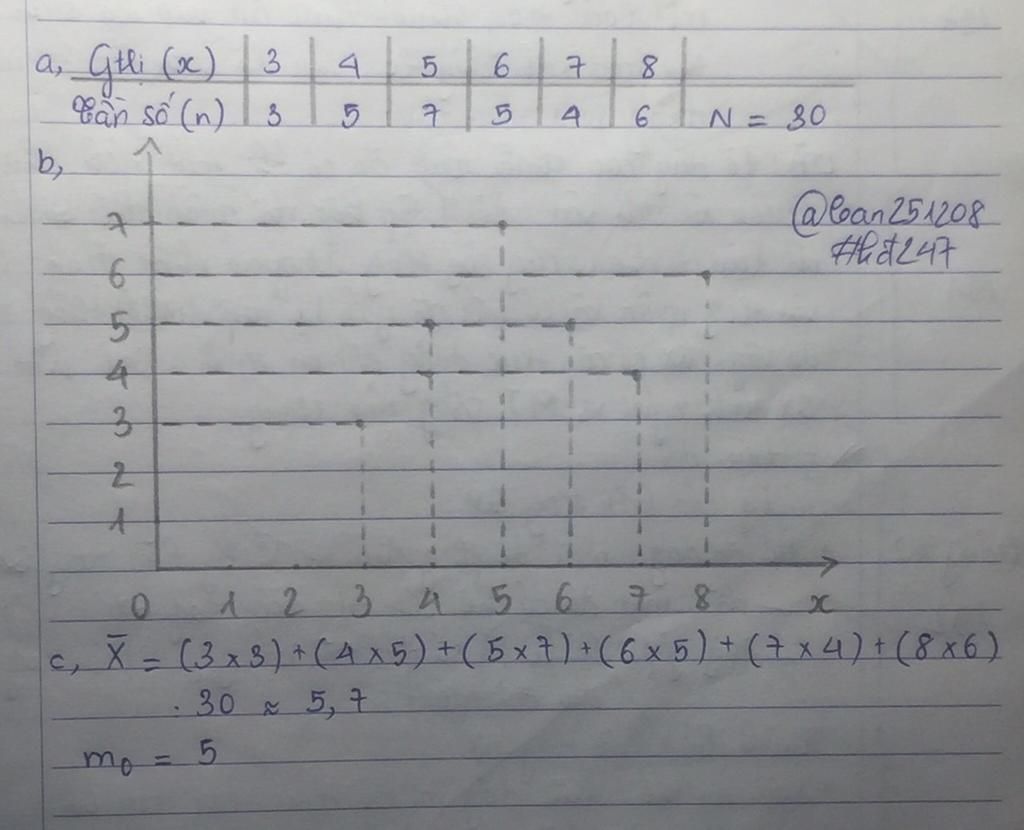 a, Gtrị (x) 3 4 5 6 7 8
Tần số (n) 3 5 7 5 4 6 N = 30
b,
@loan251208
#hđ247
7
6
5
4
3
2
1
0 1 2 3 4 5 6 7 8 x
c, X̄ = (3 x 3) + (4 x 5) + (5 x 7) + (6 x 5) + (7 x 4) + (8 x 6)
. 30 ≈ 5,7
m₀ = 5